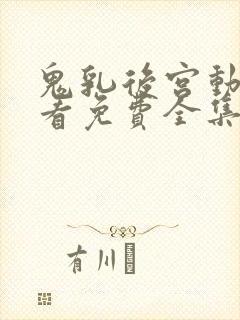 鬼乳後宮動
看免費全集
有川